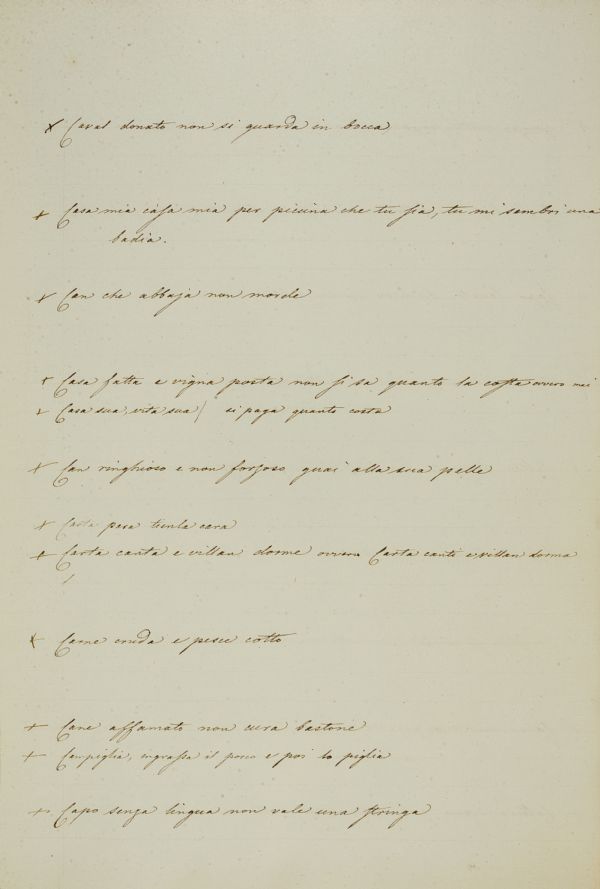 x Caval donato non si guarda in bocca
+ Casa mia casa mia per piccina che tu sia, tu mi sembri una
badia.
x Can che abbaja non morde
+ Casa fatta e vigna posta non si sa quanto la costa ovvero mai
+ Casa sua, vita sua / si paga quanto costa
+ Can ringhioso e non forzoso guai alla sua pelle
+ Carta pera tienla cara
+ Carta canta e villan dorme ovvero Carta canti e villan dorma
+ Carne cruda e pesce cotto
+ Cane affamato non cura bastone
+ Campiglia, ingrassa il porco e poi lo piglia
+ Capo senza lingua non vale una stringa